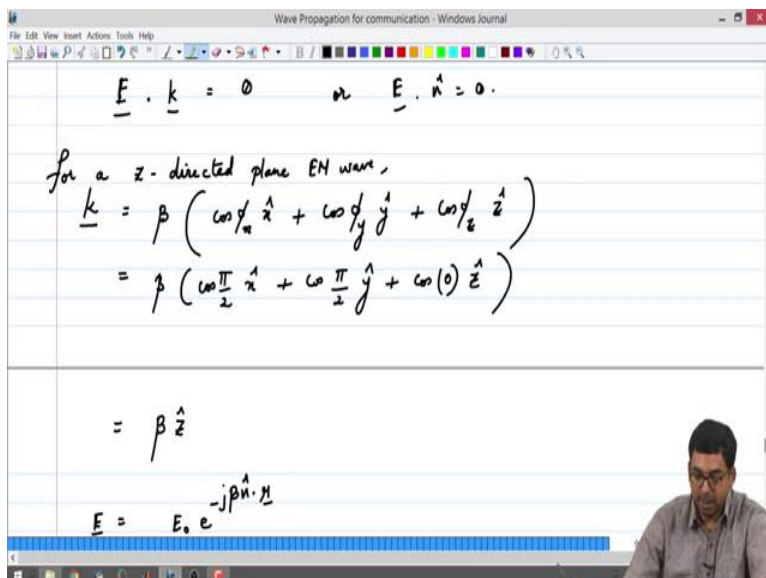 Wave Propagation for communication - Windows Journal
File Edit View Insert Actions Tools Help
B I
E̲ . k̲ = 0 or E̲ . n̂ = 0.
for a z-directed plane EM wave,
k̲ = β ( cos ϕₓ x̂ + cos ϕ_y ŷ + cos ϕ_z ẑ )
= β ( cos π/2 x̂ + cos π/2 ŷ + cos (0) ẑ )
= β ẑ
E̲ = E₀ e^(-jβn̂·r̲)